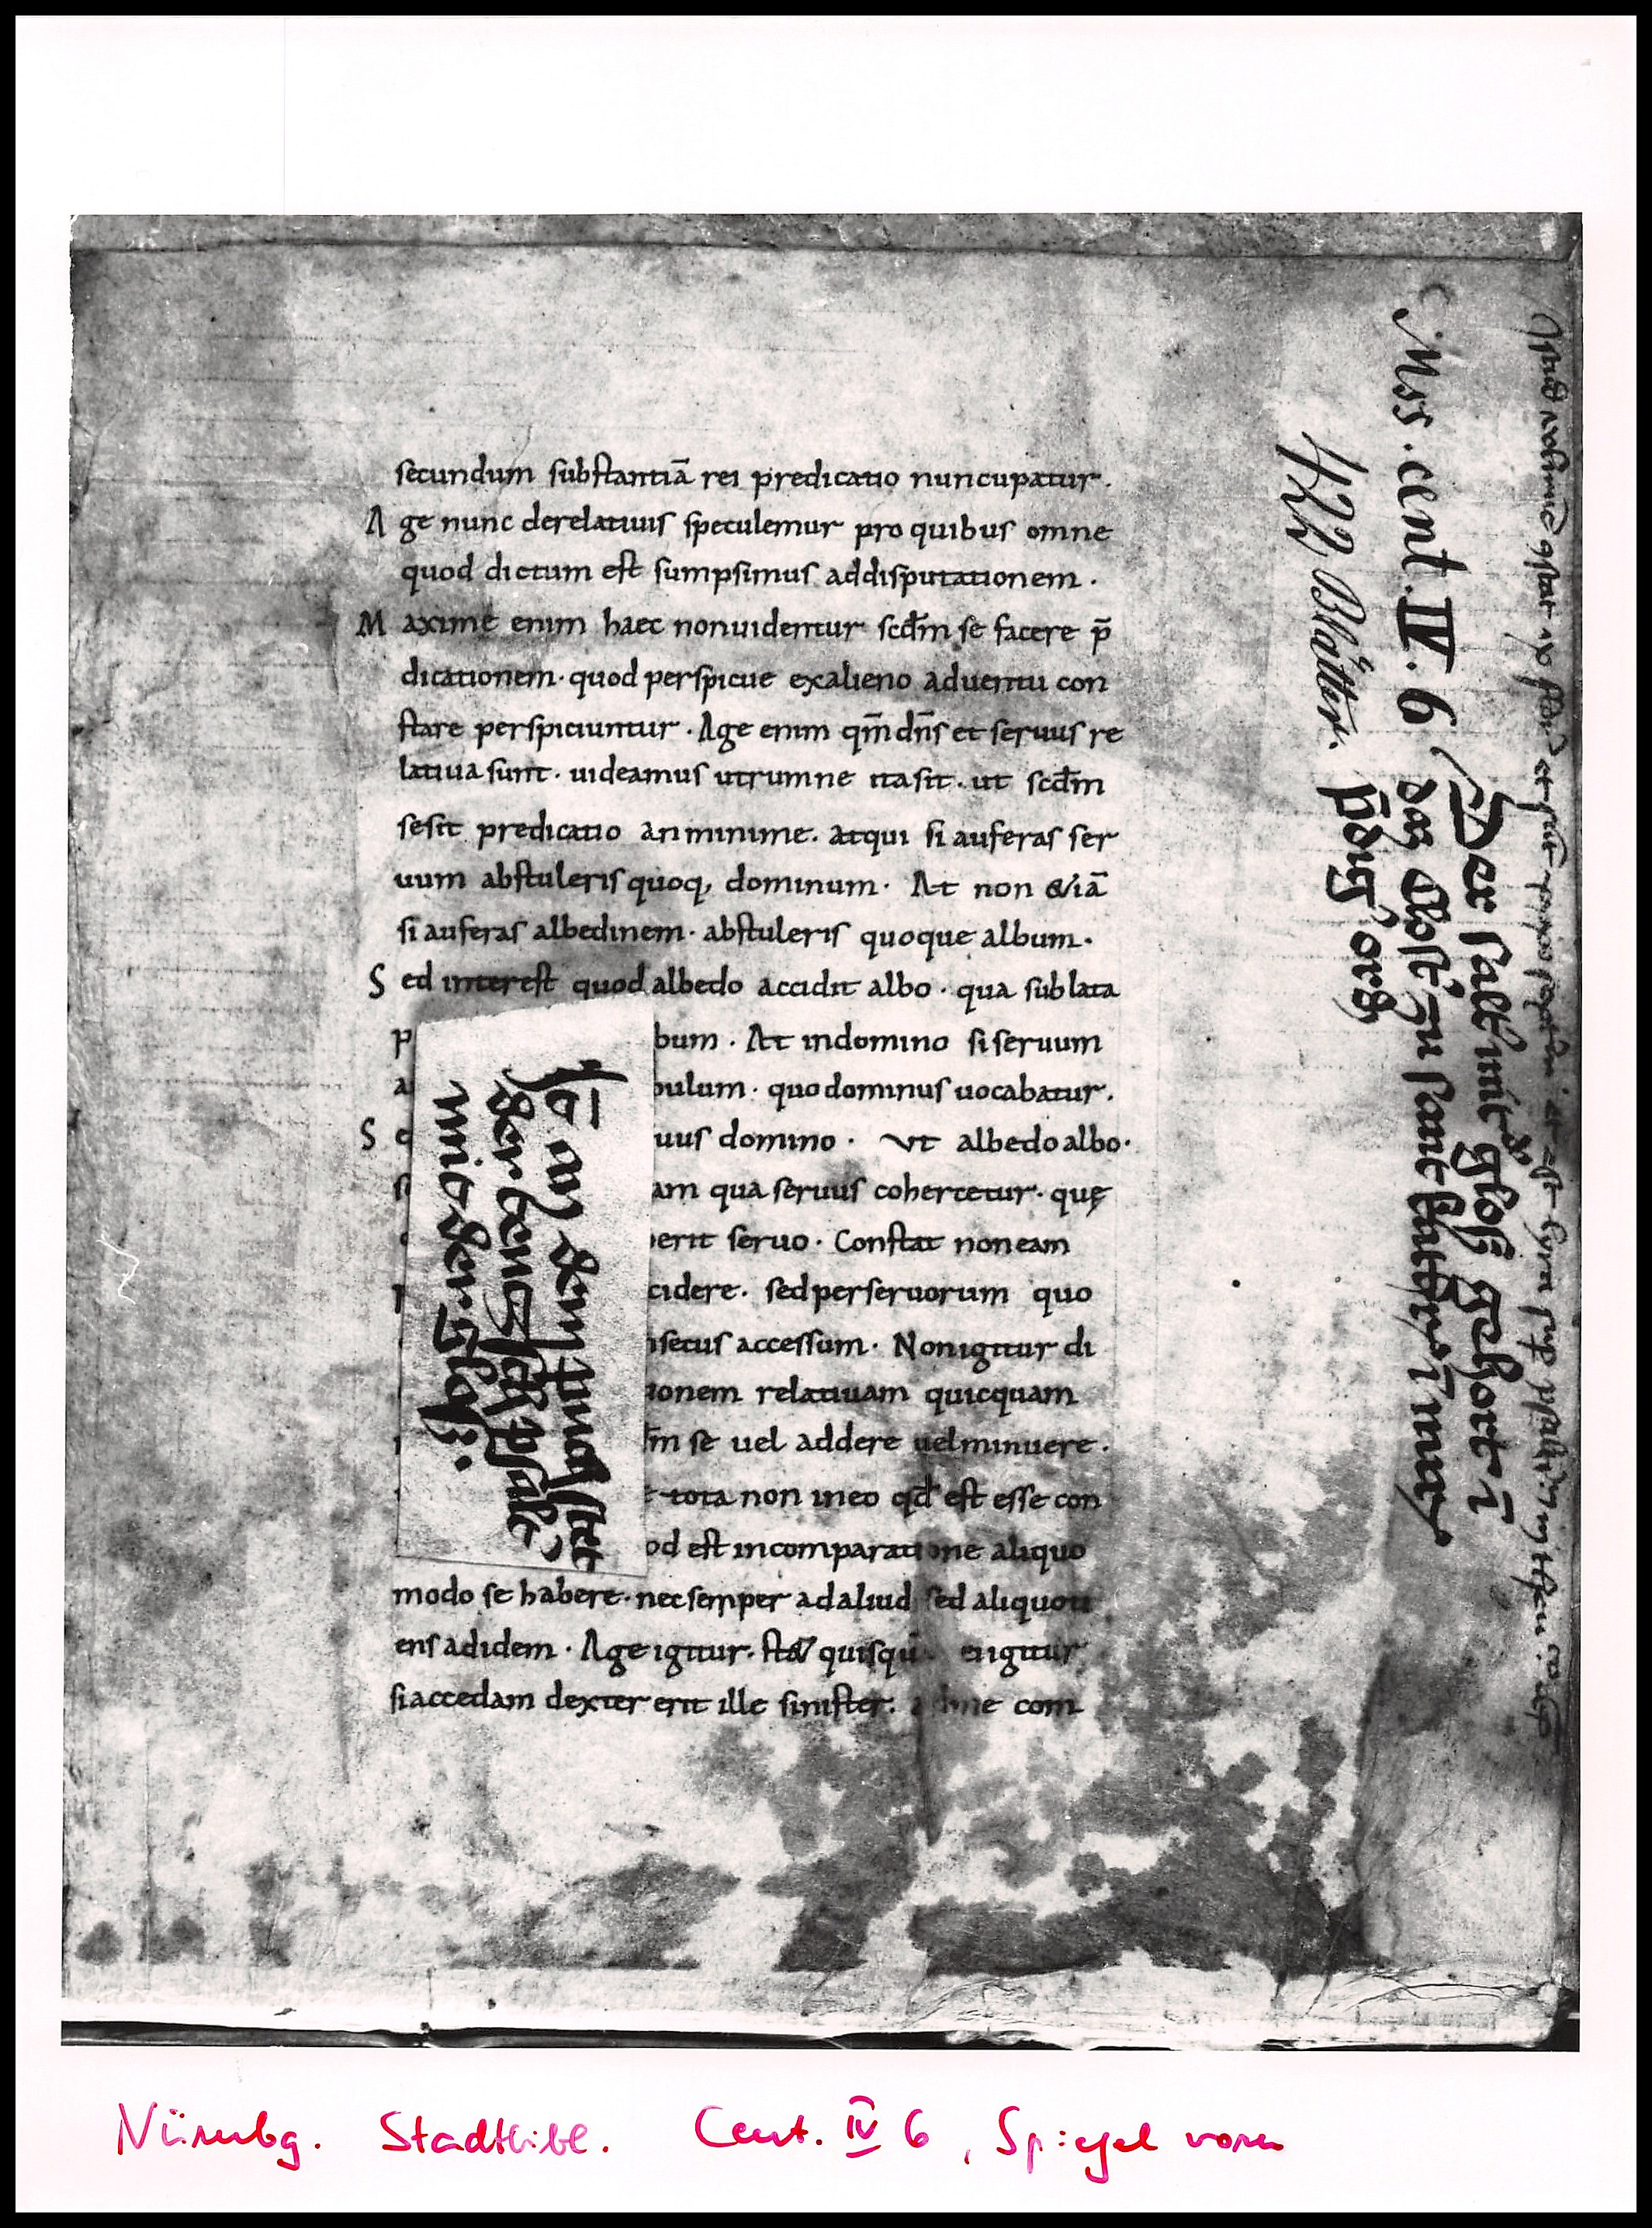 secundum substantiā rei predicatio nuncupatur.
Age nunc derelatiuis speculemur pro quibus omne
quod dictum est sumpsimus addisputationem.
Maxime enim haec nonuidentur scdm̄ se facere p̄
dicationem· quod perspicue exalieno aduentu con
stare perspiciuntur. Age enim qm̄ dn̄s et seruus re
latiua sunt· uideamus utrumne itasit· ut scdm̄
sesit predicatio anminime. atqui si auferas ser
uum abstuleris quoq, dominum· At non &iā
si auferas albedinem· abstuleris quoque album·
Sed interest quod albedo accidit albo· qua sublata
p bum. At indomino siseruum
a bulum· quodominus uocabatur.
S uus domino· ut albedo albo·
am qua seruus cohercetur· quę
erit seruo· Constat noneam
cidere· sedperseruorum quo
nsecus accessum· Nonigitur di
tionem relatiuam quicquam
m̄ se uel addere uelminuere·
tota non ineo qd̄ est esse con
od est incomparatione aliquo
modo se habere· necsemper adaliud sed aliquoti
ens adidem· Age igitur· quisquā igitur
siaccedam dexter erit ille sinister. com
an dem puch stet
der teutsch psalt
mit der glos:
Mss. cent. IV. 6
422 Blätter.
Der salt mit d' glos gehort ī
das closť zu sant
p̄dig' ord
Nürnbg. Stadtbibl. Cent. IV 6, Spiegel vorn